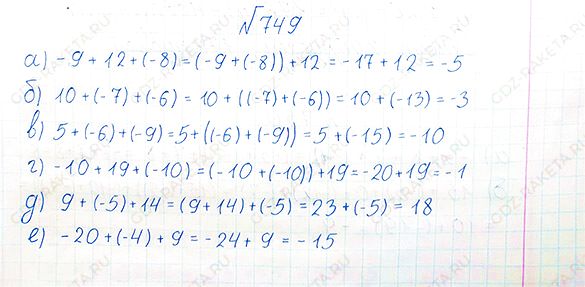 №749
а) -9+12+(-8)=(-9+(-8))+12=-17+12=-5
б) 10+(-7)+(-6)=10+((-7)+(-6))=10+(-13)=-3
в) 5+(-6)+(-9)=5+((-6)+(-9))=5+(-15)=-10
г) -10+19+(-10)=(-10+(-10))+19=-20+19=-1
д) 9+(-5)+14=(9+14)+(-5)=23+(-5)=18
е) -20+(-4)+9=-24+9=-15